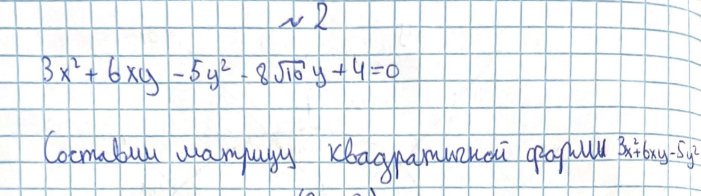 № 2
3x² + 6xy - 5y² - 8√10 y + 4 = 0
Составим матрицу квадратичной формы 3x²+6xy-5y²